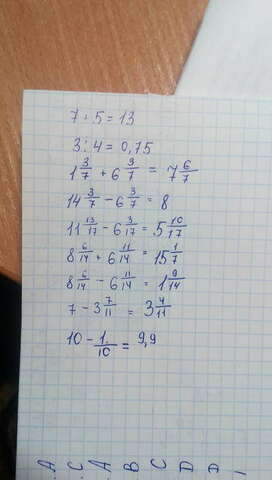 7 + 5 = 13
3 : 4 = 0,75
1 3/7 + 6 3/7 = 7 6/7
14 3/7 - 6 3/7 = 8
11 13/17 - 6 3/17 = 5 10/17
8 6/14 + 6 11/14 = 15 1/7
8 6/14 - 6 11/14 = 1 9/14
7 - 3 7/11 = 3 4/11
10 - 1/10 = 9,9
A C A B C D A 1